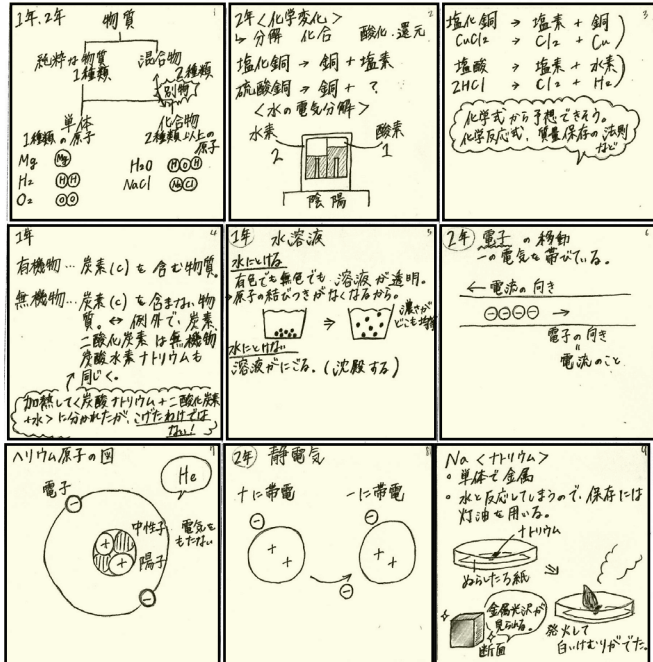 1年、2年
1
物質
純粋な物質
1種類
混合物
2種類
別物
単体
1種類の原子
化合物
2種類以上の原子
Mg Mg
H₂ H H
O₂ O O
H₂O H O H
NaCl Na Cl
2年<化学変化>
2
分解 化合 酸化・還元
塩化銅 → 銅 + 塩素
硫酸銅 → 銅 + ?
<水の電気分解>
水素
2
酸素
1
陰 陽
3
塩化銅 → 塩素 + 銅
CuCl₂ → Cl₂ + Cu
塩酸 → 塩素 + 水素
2HCl → Cl₂ + H₂
化学式から予想できそう。
化学反応式、質量保存の法則
など
1年
4
有機物…炭素(C)を含む物質。
無機物…炭素(C)を含まない物
質。↔ 例外で、炭素、
二酸化炭素は無機物
炭酸水素ナトリウムも
同じく。
加熱して<炭酸ナトリウム+二酸化炭素
+水>に分かれたが、こげたわけでは
ない!
1年 水溶液
5
水にとける
有色でも無色でも、溶液が透明。
原子の結びつきがなくなるから。
濃さが
どこも均等
水にとけない
溶液がにごる。(沈殿する)
2年 電子の移動
6
−の電気を帯びている。
← 電流の向き
⊖⊖⊖⊖ →
電子の向き
=
電流のこと
ヘリウム原子の図
7
He
電子
中性子
電気を
もたない
陽子
2年 静電気
8
+に帯電
−に帯電
Na <ナトリウム>
9
・単体で金属
・水と反応してしまうので、保存には
灯油を用いる。
ナトリウム
ぬらしたろ紙
金属光沢が
見られる。
断面
発火して
白いけむりがでた。